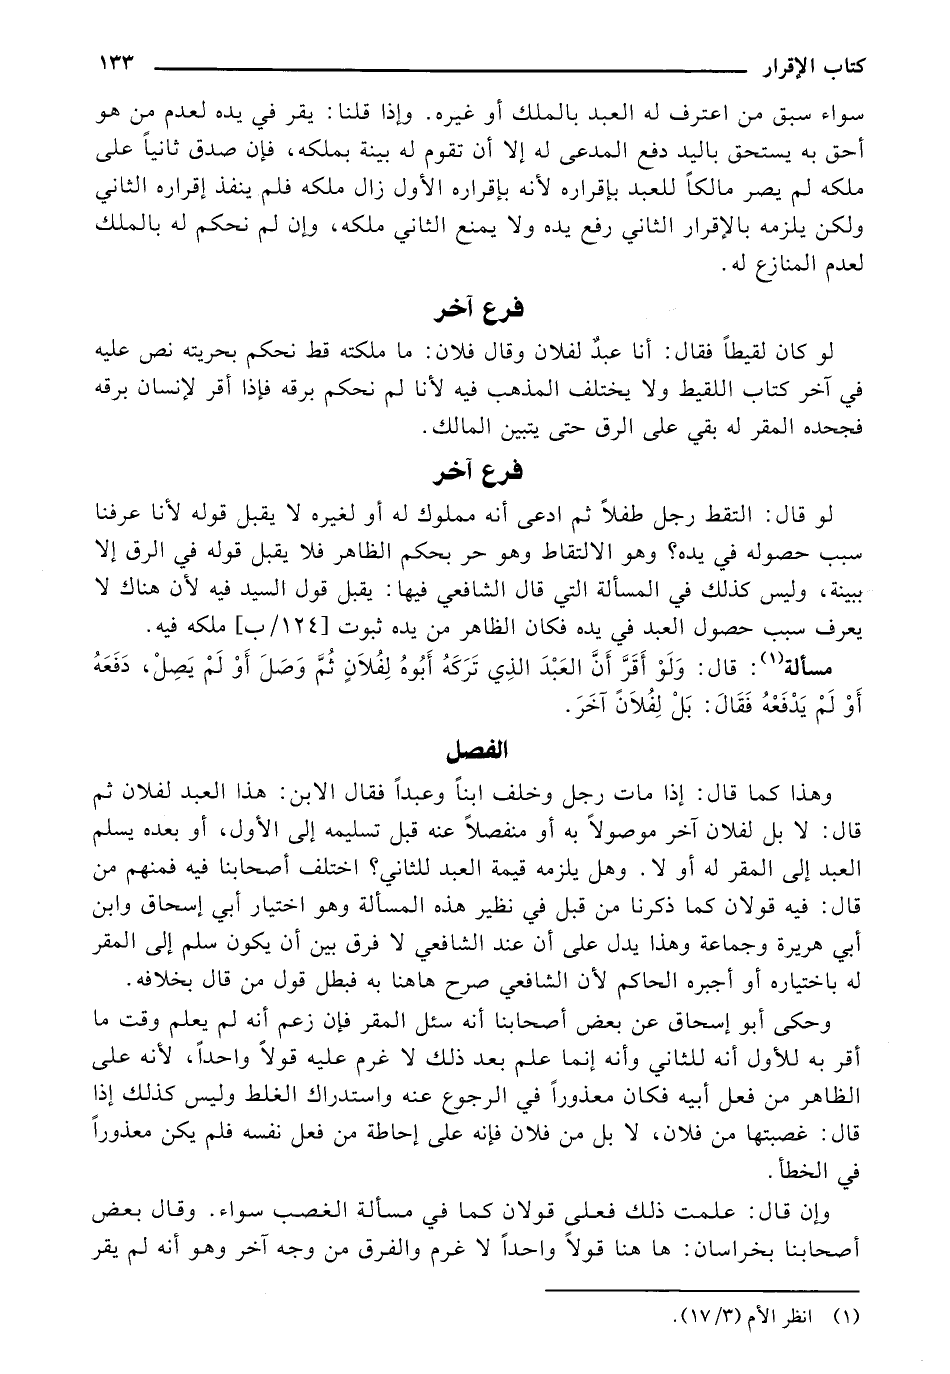 كتاب الإقرار ١٣٣
سواء سبق من اعترف له العبد بالملك أو غيره. وإذا قلنا: يقر في يده لعدم من هو
أحق به يستحق باليد دفع المدعى له إلا أن تقوم له بينة بملكه، فإن صدق ثانياً على
ملكه لم يصر مالكاً للعبد بإقراره لأنه بإقراره الأول زال ملكه فلم ينفذ إقراره الثاني
ولكن يلزمه بالإقرار الثاني رفع يده ولا يمنع الثاني ملكه، وإن لم نحكم له بالملك
لعدم المنازع له.
فرع آخر
لو كان لقيطاً فقال: أنا عبدٌ لفلان وقال فلان: ما ملكته قط نحكم بحريته نص عليه
في آخر كتاب اللقيط ولا يختلف المذهب فيه لأنا لم نحكم برقه فإذا أقر لإنسان برقه
فجحده المقر له بقي على الرق حتى يتبين المالك.
فرع آخر
لو قال: التقط رجل طفلاً ثم ادعى أنه مملوك له أو لغيره لا يقبل قوله لأنا عرفنا
سبب حصوله في يده؟ وهو الالتقاط وهو حر بحكم الظاهر فلا يقبل قوله في الرق إلا
ببينة، وليس كذلك في المسألة التي قال الشافعي فيها: يقبل قول السيد فيه لأن هناك لا
يعرف سبب حصول العبد في يده فكان الظاهر من يده ثبوت [١٢٤/ ب] ملكه فيه.
مسألة(١): قال: وَلَوْ أَقَرَّ أَنَّ العَبْدَ الذِي تَرَكَهُ أَبُوهُ لِفُلاَنٍ ثُمَّ وَصَلَ أَوْ لَمْ يَصِلْ، دَفَعَهُ
أَوْ لَمْ يَدْفَعْهُ فَقَالَ: بَلْ لِفُلاَنٍ آخَرَ.
الفصل
وهذا كما قال: إذا مات رجل وخلف ابناً وعبداً فقال الابن: هذا العبد لفلان ثم
قال: لا بل لفلان آخر موصولاً به أو منفصلاً عنه قبل تسليمه إلى الأول، أو بعده يسلم
العبد إلى المقر له أو لا. وهل يلزمه قيمة العبد للثاني؟ اختلف أصحابنا فيه فمنهم من
قال: فيه قولان كما ذكرنا من قبل في نظير هذه المسألة وهو اختيار أبي إسحاق وابن
أبي هريرة وجماعة وهذا يدل على أن عند الشافعي لا فرق بين أن يكون سلم إلى المقر
له باختياره أو أجبره الحاكم لأن الشافعي صرح هاهنا به فبطل قول من قال بخلافه.
وحكى أبو إسحاق عن بعض أصحابنا أنه سئل المقر فإن زعم أنه لم يعلم وقت ما
أقر به للأول أنه للثاني وأنه إنما علم بعد ذلك لا غرم عليه قولاً واحداً، لأنه على
الظاهر من فعل أبيه فكان معذوراً في الرجوع عنه واستدراك الغلط وليس كذلك إذا
قال: غصبتها من فلان، لا بل من فلان فإنه على إحاطة من فعل نفسه فلم يكن معذوراً
في الخطأ.
وإن قال: علمت ذلك فعلى قولان كما في مسألة الغصب سواء. وقال بعض
أصحابنا بخراسان: ها هنا قولاً واحداً لا غرم والفرق من وجه آخر وهو أنه لم يقر
(١) انظر الأم (١٧/٣).